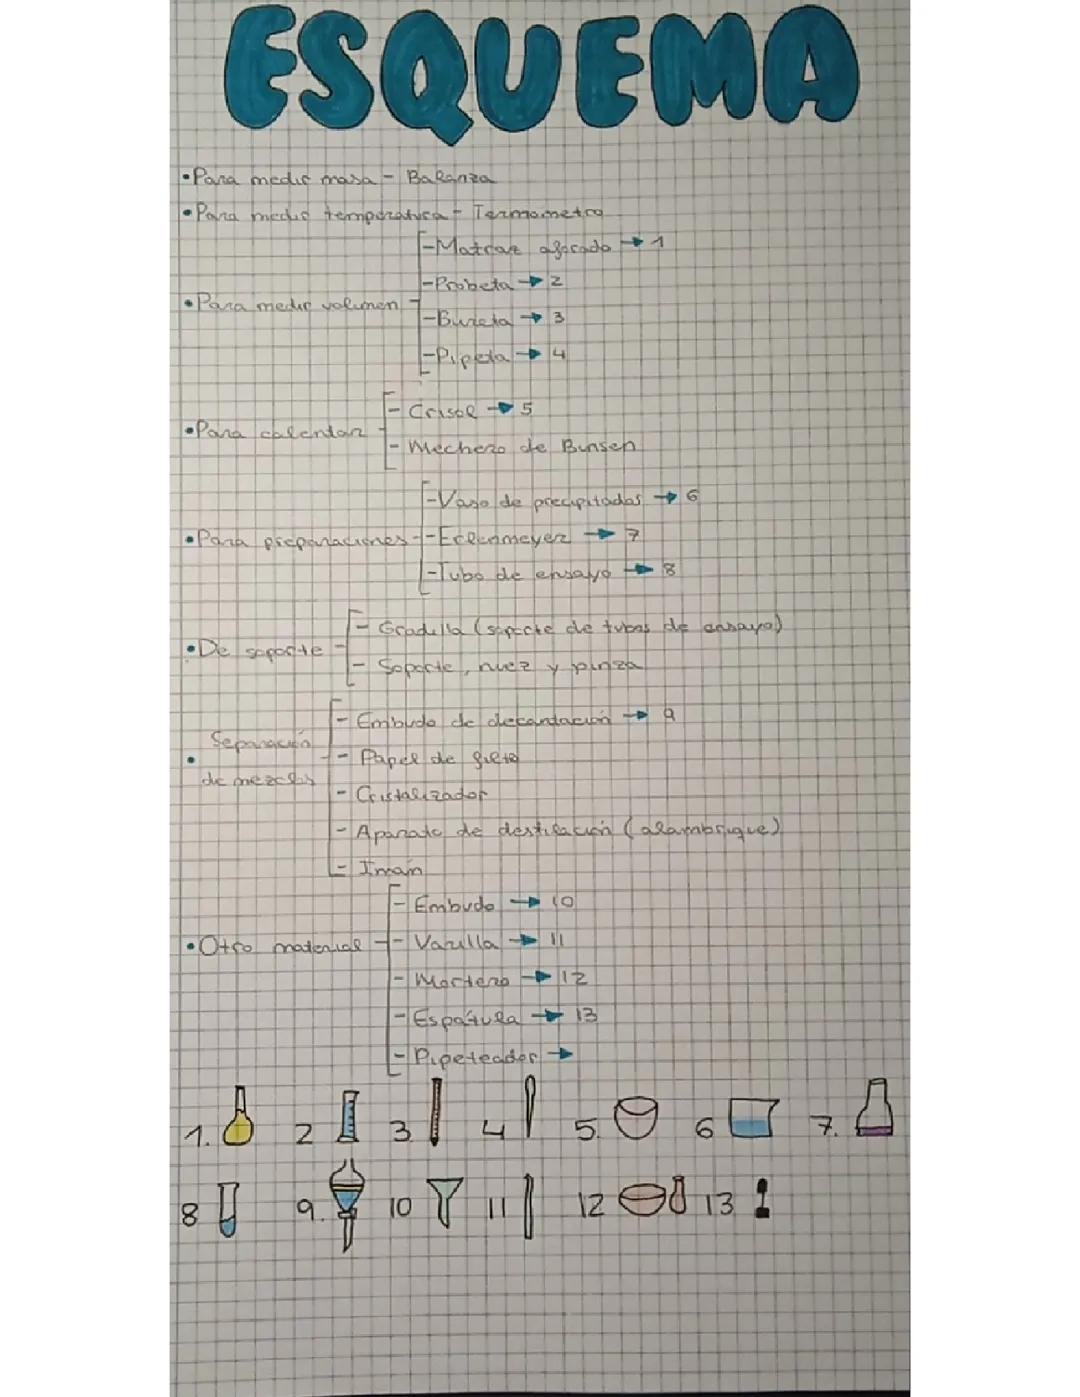 ESQUEMA
•Para medir masa - Balanza
•Para medir temperatura - Termometro
•Para medir volumen
-Matraz aforado → 1
-Probeta → 2
-Bureta → 3
-Pipeta → 4
•Para calentar
- Crisol → 5
- Mechero de Bunsen
•Para preparaciones
-Vaso de precipitados → 6
-Erlenmeyer → 7
-Tubo de ensayo → 8
•De soporte
- Gradilla (soporte de tubos de ensayo)
- Soporte, nuez y pinza
• Separación
de mezclas
- Embudo de decantación → 9
- Papel de filtro
- Cristalizador
- Aparato de destilación (alambrique)
- Imán
•Otro material
- Embudo → 10
- Varilla → 11
- Mortero → 12
- Espátula → 13
- Pipeteador →
1. 2 3 4 5. 6 7.
8 9. 10 11 12 13